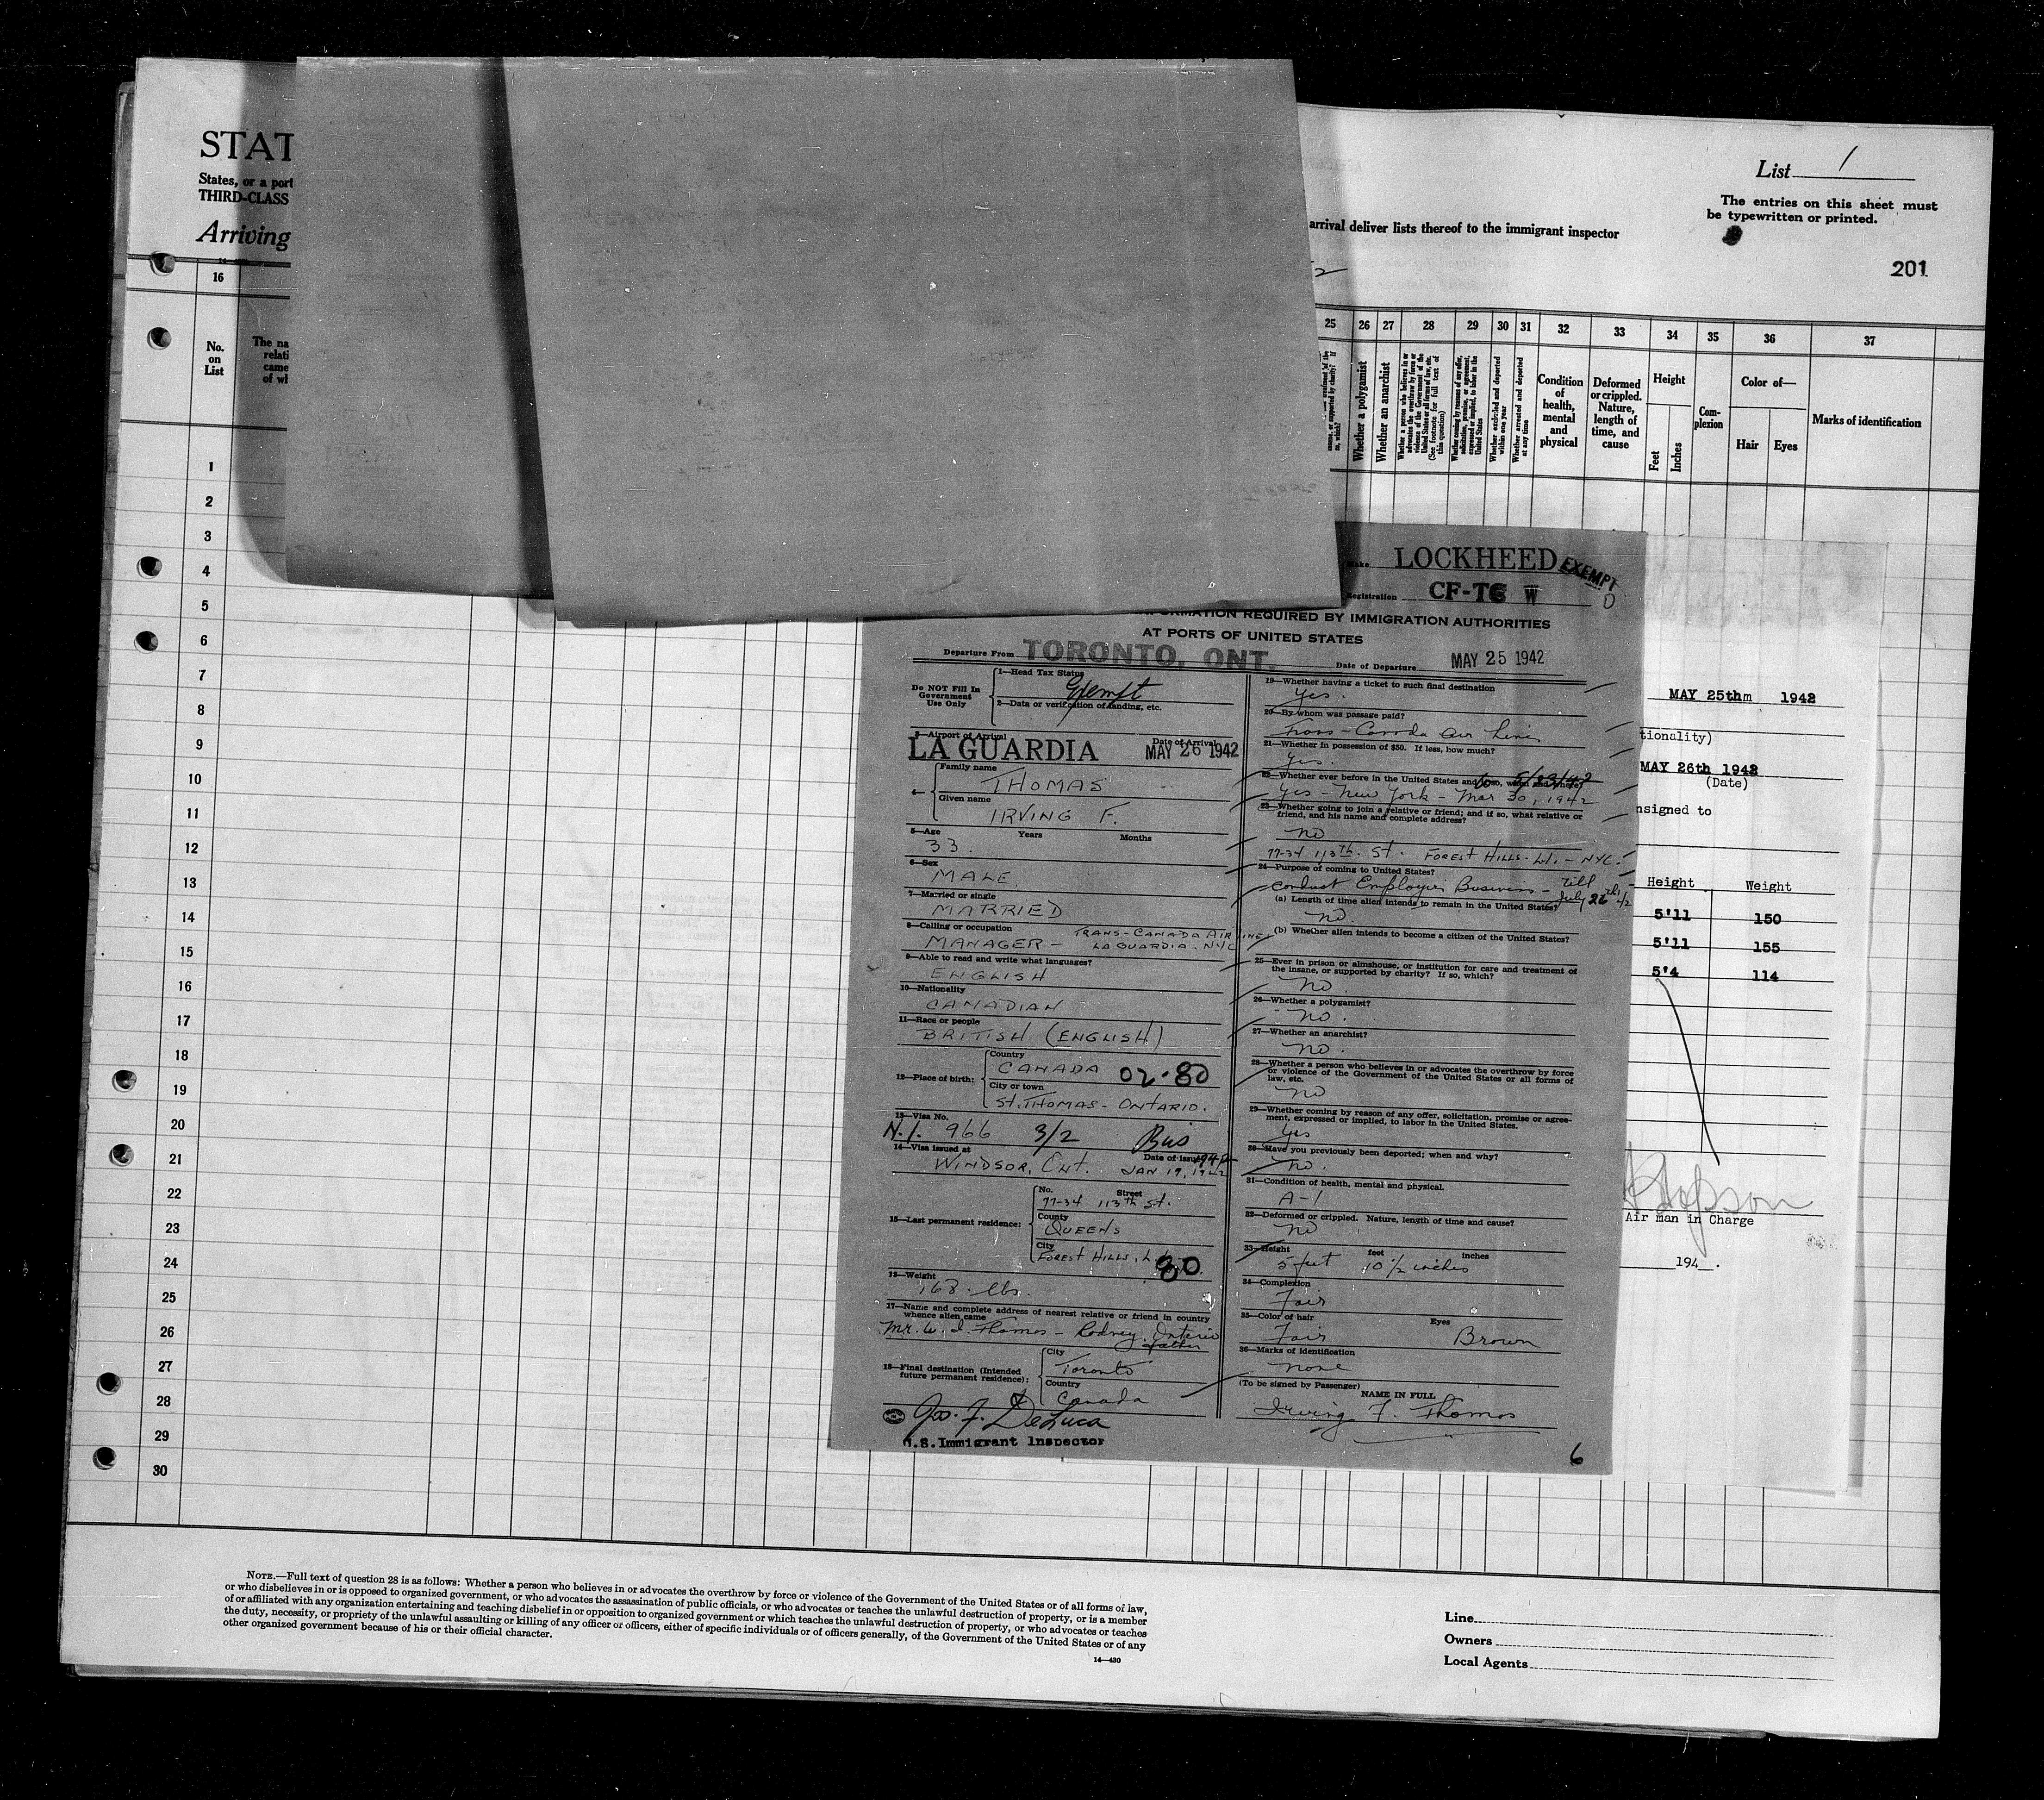 STAT
States, or a port
THIRD-CLASS
Arriving
List 1
The entries on this sheet must
be typewritten or printed.
arrival deliver lists thereof to the immigrant inspector
201
16
No.
on
List
The na
relati
came
of wh
25
26
27
28
29
30
31
32
33
34
35
36
37
Whether a polygamist
Whether an anarchist
Whether a person who believes in or
advocates the overthrow by force or
violence of the Government of the
United States or all forms of law, etc.
(See footnote for full text of
this question)
Whether coming by reason of any offer,
solicitation, promise, or agreement,
expressed or implied, to labor in the
United States
Whether excluded and deported
within one year
Whether arrested and deported
at any time
Condition
of
health,
mental
and
physical
Deformed
or crippled.
Nature,
length of
time, and
cause
Height
Feet
Inches
Com-
plexion
Color of—
Hair
Eyes
Marks of identification
1
2
3
4
5
6
7
8
9
10
11
12
13
14
15
16
17
18
19
20
21
22
23
24
25
26
27
28
29
30
Make LOCKHEED
EXEMPT
Registration CF-TC W
0
FORMATION REQUIRED BY IMMIGRATION AUTHORITIES
AT PORTS OF UNITED STATES
Departure From TORONTO, ONT. Date of Departure MAY 25 1942
Do NOT Fill In
Government
Use Only
1—Head Tax Status
Exempt
2—Data or verification of landing, etc.
3—Airport of Arrival Date of Arrival
LA GUARDIA MAY 26 1942
4—
Family name
THOMAS
Given name
IRVING F.
5—Age Years Months
33.
6—Sex
MALE
7—Married or single
MARRIED
8—Calling or occupation TRANS-CANADA AIR LINES
MANAGER — LA GUARDIA. NYC
9—Able to read and write what languages?
ENGLISH
10—Nationality
CANADIAN
11—Race or people
BRITISH (ENGLISH)
12—Place of birth:
Country
CANADA 02-80
City or town
ST. THOMAS - ONTARIO.
13—Visa No.
N.I. 966 3/2 Bus
14—Visa issued at Date of issue
WINDSOR, Ont. JAN 19, 1942
15—Last permanent residence:
No. Street
77-34 113th St.
County
QUEENS
City
FOREST HILLS, L.I. 80
16—Weight
168. lbs.
17—Name and complete address of nearest relative or friend in country
whence alien came
Thomas - Rodney, Ontario
father
18—Final destination (Intended
future permanent residence):
City
Toronto
Country
Canada
Jos. F. DeLuca
U.S. Immigrant Inspector
19—Whether having a ticket to such final destination
Yes.
20—By whom was passage paid?
Trans-Canada Air Lines
21—Whether in possession of $50. If less, how much?
Yes.
22—Whether ever before in the United States and if so, when and where?
5/23/42
Yes - New York - Mar 30, 1942
23—Whether going to join a relative or friend; and if so, what relative or
friend, and his name and complete address?
no
77-34 113th. St. FOREST HILLS. L.I. - NYC.
24—Purpose of coming to United States?
Conduct Employers Business - till
July 26th/42
(a) Length of time alien intends to remain in the United States?
no
(b) Whether alien intends to become a citizen of the United States?
25—Ever in prison or almshouse, or institution for care and treatment of
the insane, or supported by charity? If so, which?
no.
26—Whether a polygamist?
no.
27—Whether an anarchist?
no.
28—Whether a person who believes in or advocates the overthrow by force
or violence of the Government of the United States or all forms of
law, etc.
no
29—Whether coming by reason of any offer, solicitation, promise or agree-
ment, expressed or implied, to labor in the United States.
Yes
30—Have you previously been deported; when and why?
no.
31—Condition of health, mental and physical.
A-1
32—Deformed or crippled. Nature, length of time and cause?
no
33—Height feet inches
5 feet 10 1/2 inches
34—Complexion
Fair
35—Color of hair Eyes
Fair Brown
36—Marks of identification
none
(To be signed by Passenger)
NAME IN FULL
Irving F. Thomas
6
MAY 25thm 1942
tionality)
MAY 26th 1942
(Date)
nsigned to
Height Weight
5'11 150
5'11 155
5'4 114
Air man in Charge
194_.
NOTE.—Full text of question 28 is as follows: Whether a person who believes in or advocates the overthrow by force or violence of the Government of the United States or of all forms of law,
or who disbelieves in or is opposed to organized government, or who advocates the assassination of public officials, or who advocates or teaches the unlawful destruction of property, or is a member
of or affiliated with any organization entertaining and teaching disbelief in or opposition to organized government or which teaches the unlawful destruction of property, or who advocates or teaches
the duty, necessity, or propriety of the unlawful assaulting or killing of any officer or officers, either of specific individuals or of officers generally, of the Government of the United States or of any
other organized government because of his or their official character.
14—430
Line
Owners
Local Agents